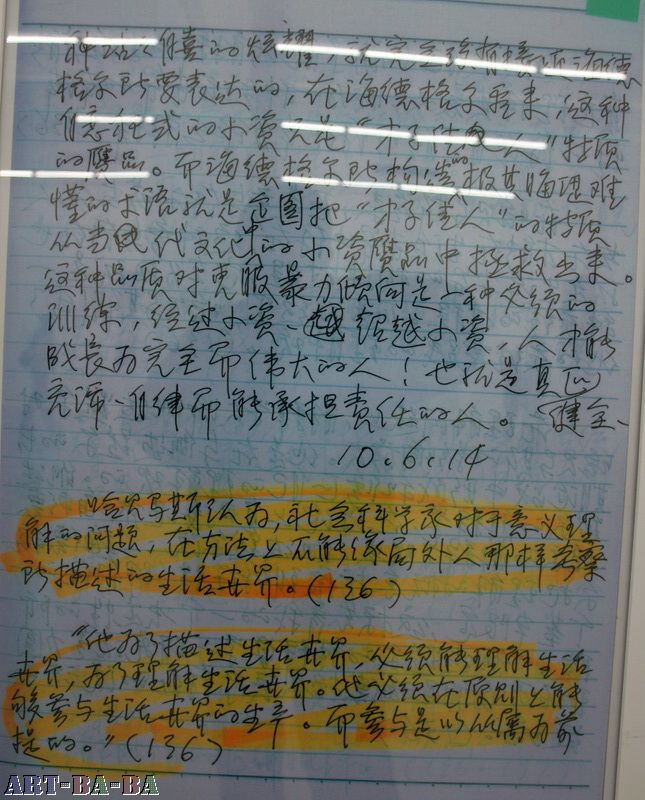 种沾沾自喜的炫耀，就完全没有接近海德
格尔所要表达的，在海德格尔看来，这种
自恋式的小资只是“才子佳人”特质
的赝品。而海德格尔所构造的极其晦涩难
懂的术语就是企图把“才子佳人”的特质
从当代文化中的小资赝品中拯救出来。
这种品质对克服暴力倾向是一种必须的
训练，经过小资、超越小资，人才能
成长为完全而伟大的人！也就是真正
充沛、自律而能承担责任的人。健全、
10.6.14
哈贝马斯认为，社会科学家对于意义理
解的问题，在方法上不能像局外人那样考察
所描述的生活世界。(136)
“他为了描述生活世界，必须能理解生活
世界，为了理解生活世界。他必须在原则上能
够参与生活世界的生产。而参与是以从属为前
提的。”(136)
ART-BA-BA